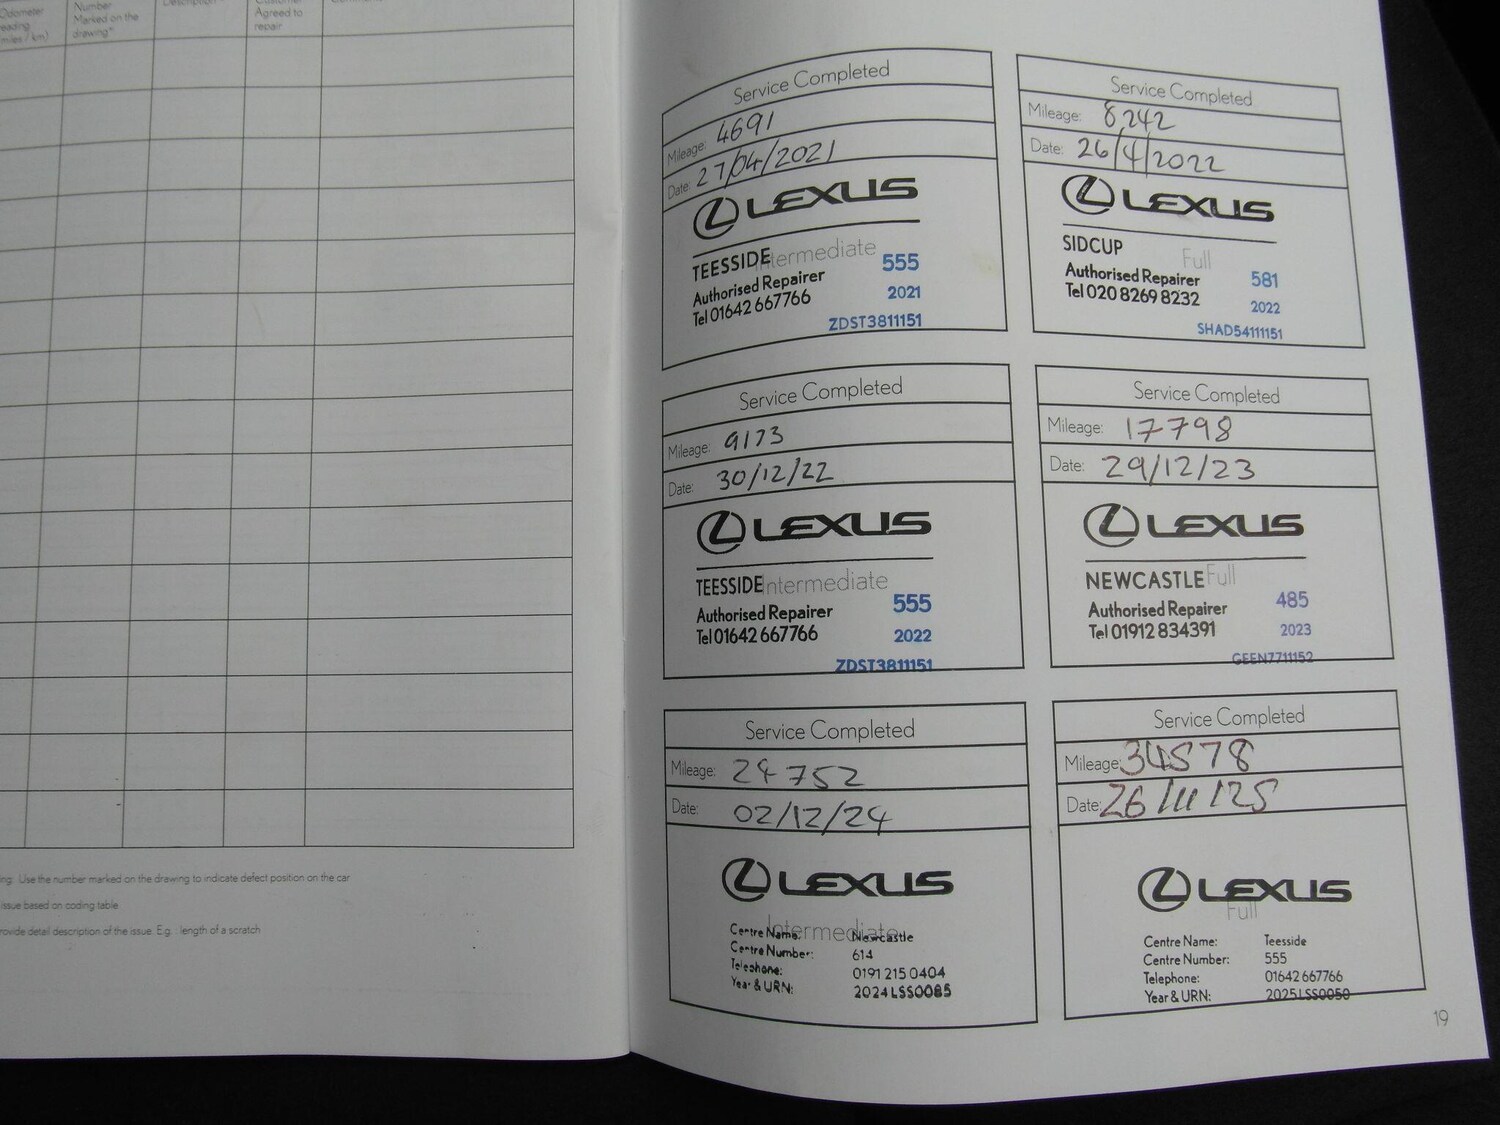 Odometer
reading
(miles / km)
Number
Marked on the
drawing*
Description
Customer
Agreed to
repair
ing: Use the number marked on the drawing to indicate defect position on the car
issue based on coding table
rovide detail description of the issue. E.g.: length of a scratch
Service Completed
Mileage: 4691
Date: 27/04/2021
LEXUS
TEESSIDE Intermediate
Authorised Repairer 555
Tel 01642 667766 2021
ZDST3811151
Service Completed
Mileage: 8,242
Date: 26/4/2022
LEXUS
SIDCUP Full
Authorised Repairer 581
Tel 020 8269 8232 2022
SHAD54111151
Service Completed
Mileage: 9173
Date: 30/12/22
LEXUS
TEESSIDE Intermediate
Authorised Repairer 555
Tel 01642 667766 2022
ZDST3811151
Service Completed
Mileage: 17798
Date: 29/12/23
LEXUS
NEWCASTLE Full
Authorised Repairer 485
Tel 01912 834391 2023
GEEN7711152
Service Completed
Mileage: 24752
Date: 02/12/24
LEXUS
Intermediate
Centre Name: Newcastle
Centre Number: 614
Telephone: 0191 215 0404
Year & URN: 2024LSS0085
Service Completed
Mileage: 34578
Date: 26/11/25
LEXUS
Full
Centre Name: Teesside
Centre Number: 555
Telephone: 01642 667766
Year & URN: 2025LSS0050
19